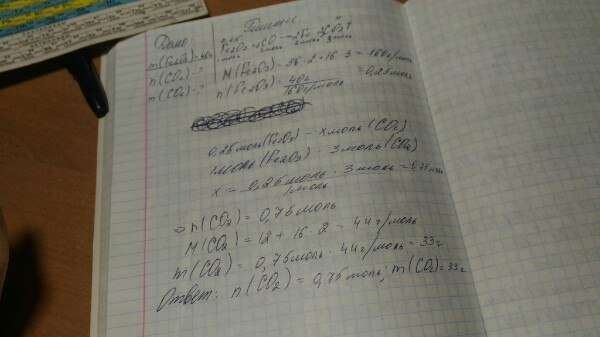 Дано: Решение:
m(Fe₂O₃)=40г Fe₂O₃ + 3CO = 2Fe + 3CO₂↑
n(CO₂) - ? M(Fe₂O₃) = 56·2+16·3 = 160г/моль
m(CO₂) - ? n(Fe₂O₃) = 40г/160г/моль = 0,25моль
0,25моль(Fe₂O₃) - xмоль(CO₂)
1моль(Fe₂O₃) - 3моль(CO₂)
x = 0,25моль · 3моль/1моль = 0,75моль
n(CO₂) = 0,75моль
M(CO₂) = 12 + 16·2 = 44г/моль
m(CO₂) = 0,75моль · 44г/моль = 33г
Ответ: n(CO₂) = 0,75моль; m(CO₂) = 33г